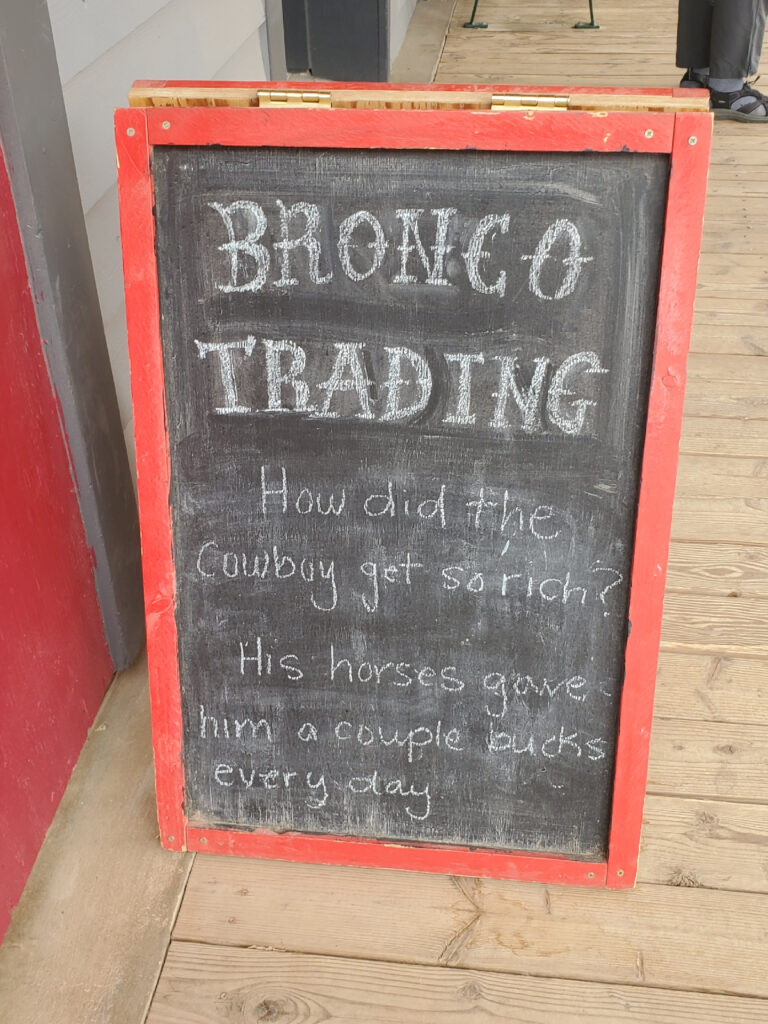 BRONCO
TRADING
How did the
Cowboy get so rich?
His horses gave
him a couple bucks
every day